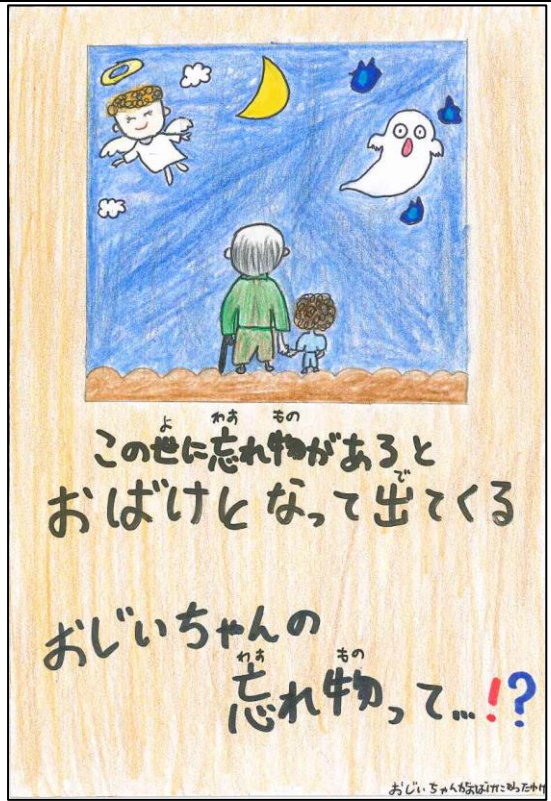 この世に忘れ物があると
おばけとなって出てくる
おじいちゃんの
忘れ物って…!?
おじいちゃんがおばけになったわけ